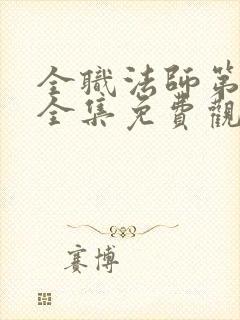 全職法師第
全集免費觀
賽博